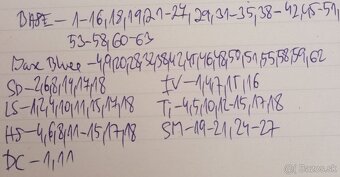 BASE - 1-16,18,19,21-27,29,31-35,38-42,45-51,
53-58,60-63
Dark Blue - 4,9,20,28,32,38,42,45,46,48,50,51,55,58,59,62
SD - 2,6,8,14,17,18
IV - 1,4,7,15,16
LS - 1,2,4,10,11,15,17,18
Ti - 4,5,10,12-15,17,18
HS - 4,6,8,11-15,17,18
SM - 19-21,24-27
DC - 1,11
bazos.sk